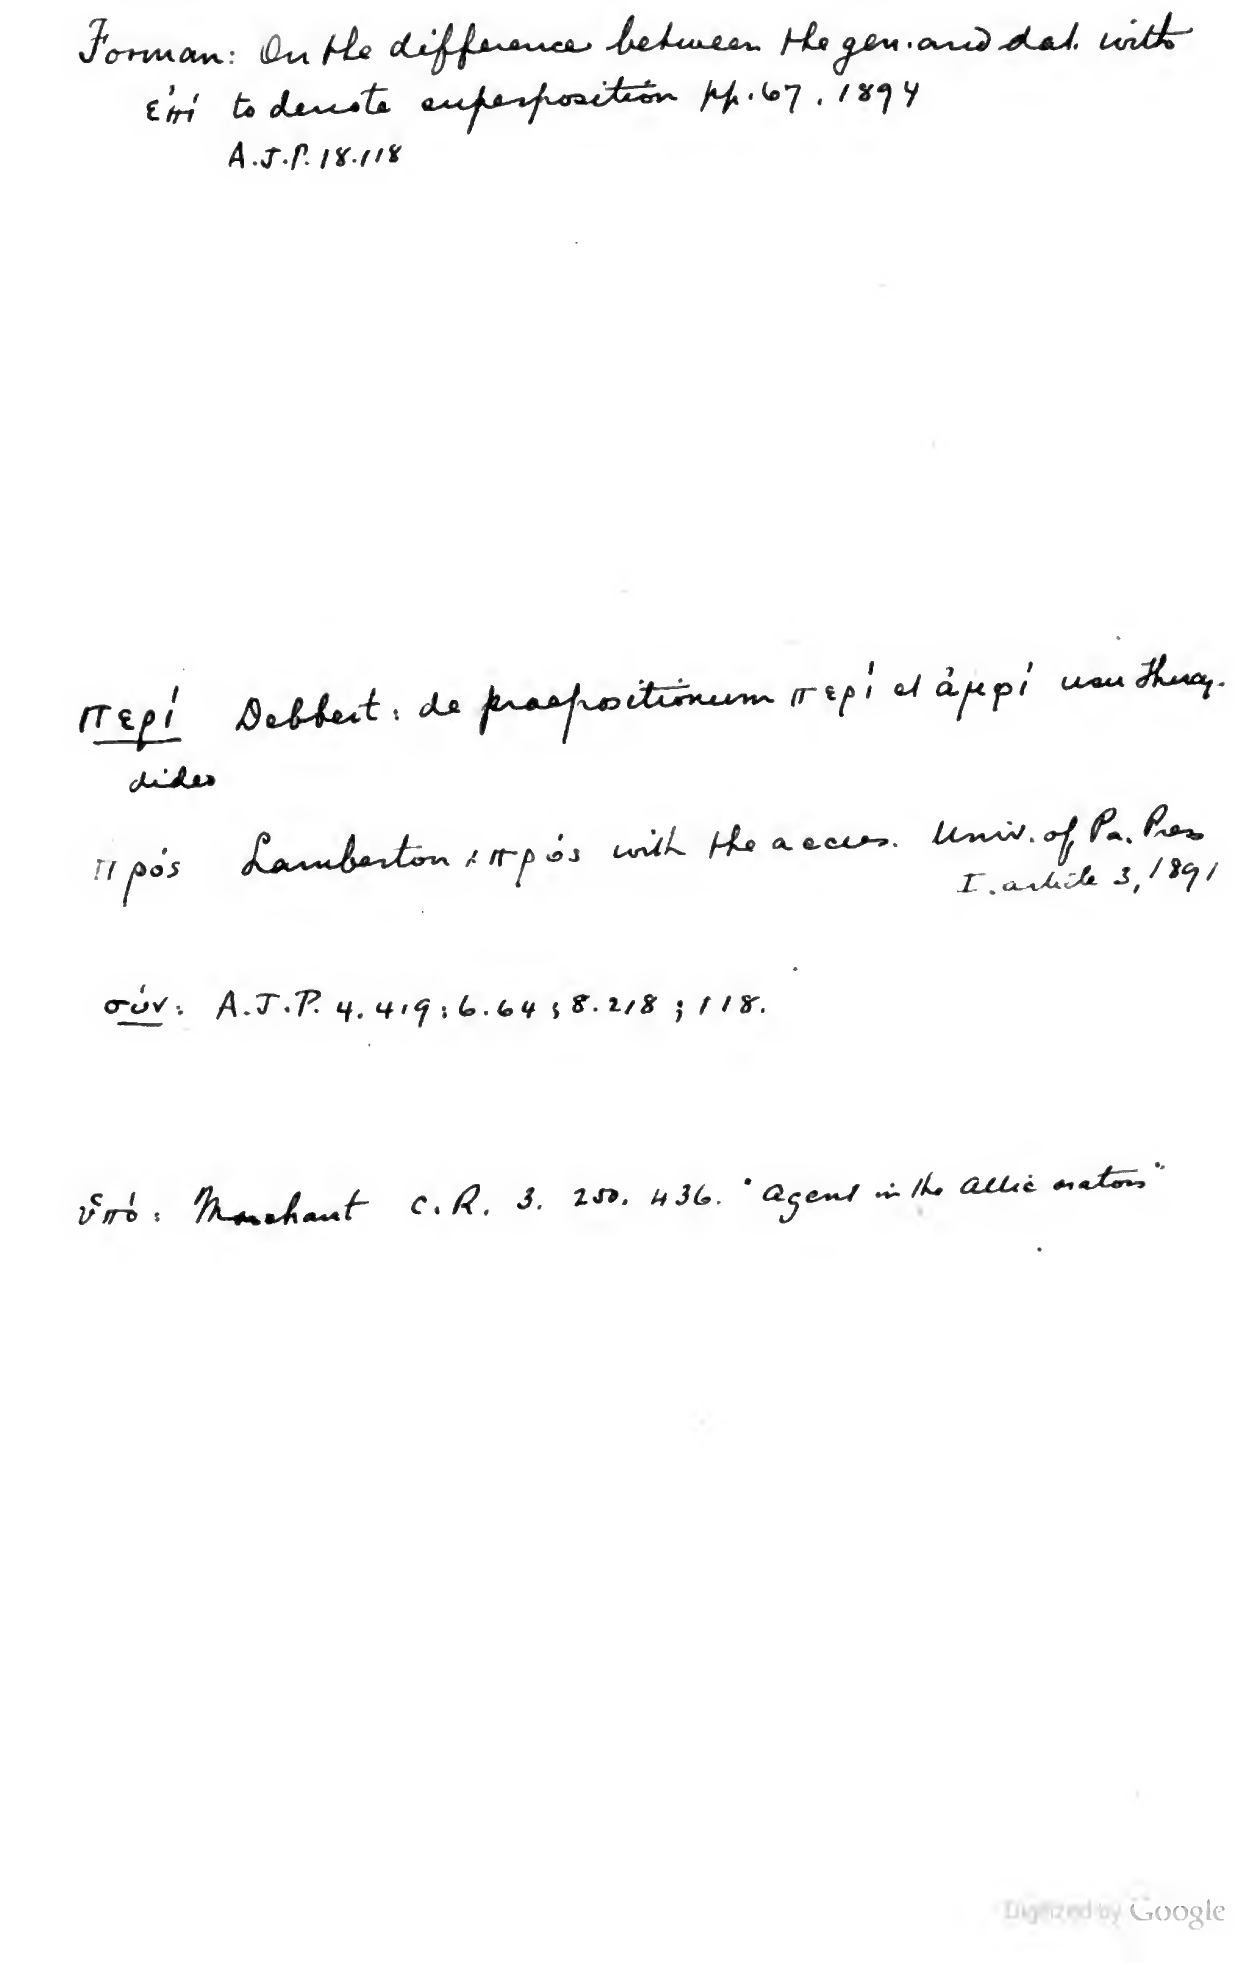 Forman: On the difference between the gen. and dat. with
ἐπί to denote superposition pp. 67. 1894
A.J.P. 18.118
περί Debbert: de praepositionum περί et ἀμφί usu Thucy-
dides
πρός Lamberton: πρός with the accus. Univ. of Pa. Press
I. article 3, 1891
σύν: A.J.P. 4.419; 6.64; 8.218; 118.
ὑπό: Marchant C.R. 3. 250. 436. "Agent in the Attic orators"
Digitized by Google